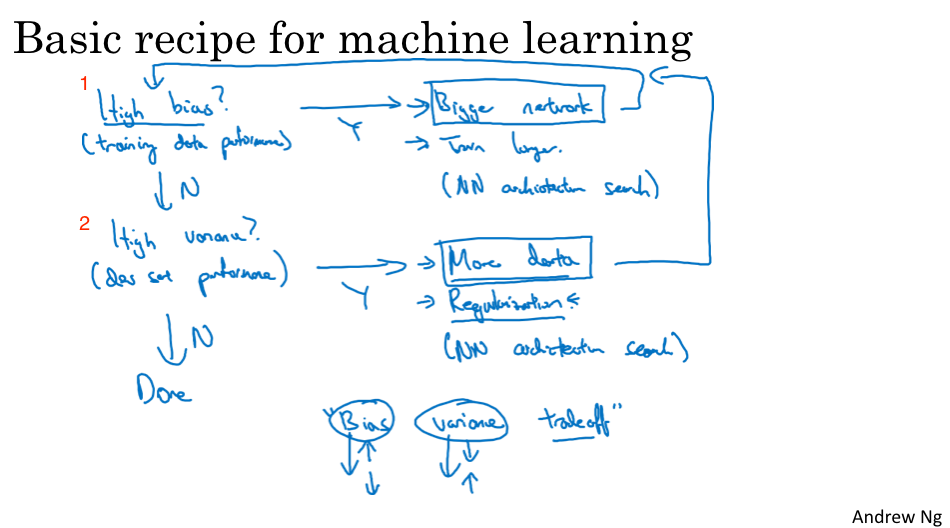 Basic recipe for machine learning
1
High bias?
(training data performance)
Y
→ Bigger network
→ Train longer.
(NN architecture search)
N
2
High variance?
(dev set performance)
Y
→ More data
→ Regularization
(NN architecture search)
N
Done
"Bias variance tradeoff"
Andrew Ng